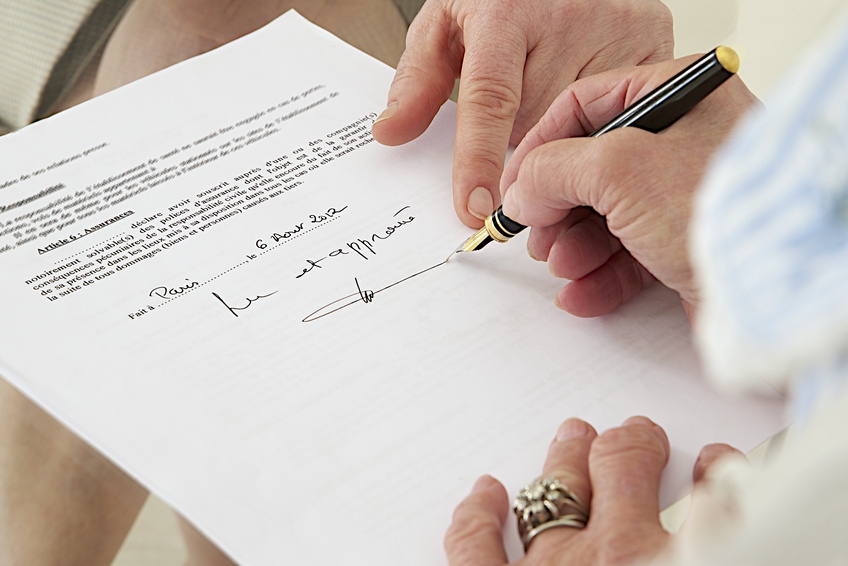 de ses relations presse.
Responsabilité
La responsabilité de l'établissement de santé ne saurait être engagée en cas de perte,
Article 6 : Assurances
déclare avoir souscrit auprès d'une ou des compagnie(s)
notoirement solvable(s) des polices d'assurance dont l'objet est de la garantir
conséquences pécuniaires de la responsabilité civile qu'elle encourt du fait de son
de sa présence dans les lieux mis à sa disposition dans tous les cas où elle serait
la suite de tous dommages (biens et personnes) causés aux tiers.
Fait à Paris, le 6 Août 2012
Lu et approuvé